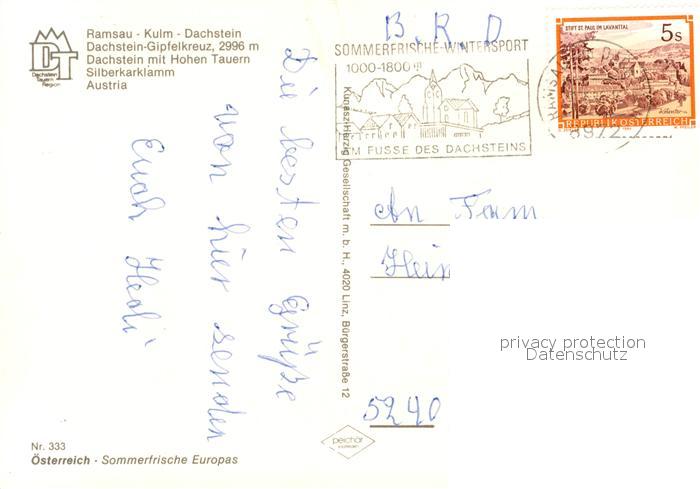 Ramsau - Kulm - Dachstein
Dachstein-Gipfelkreuz, 2996 m
Dachstein mit Hohen Tauern
Silberkarklamm
Austria
DT
Dachstein
Tauern
Region
Die besten Grüße
von hier senden
Euch Hedi
Nr. 333
Österreich - Sommerfrische Europas
Kunasz-Herzig Gesellschaft m. b. H., 4020 Linz, Bürgerstraße 12
peichär
B. R. D
SOMMERFRISCHE-WINTERSPORT
1000-1800 m
AM FUSSE DES DACHSTEINS
RAMSA
8972
STIFT ST. PAUL IM LAVANTTAL
5s
REPUBLIK ÖSTERREICH
An Fam
Hein
5240
privacy protection
Datenschutz